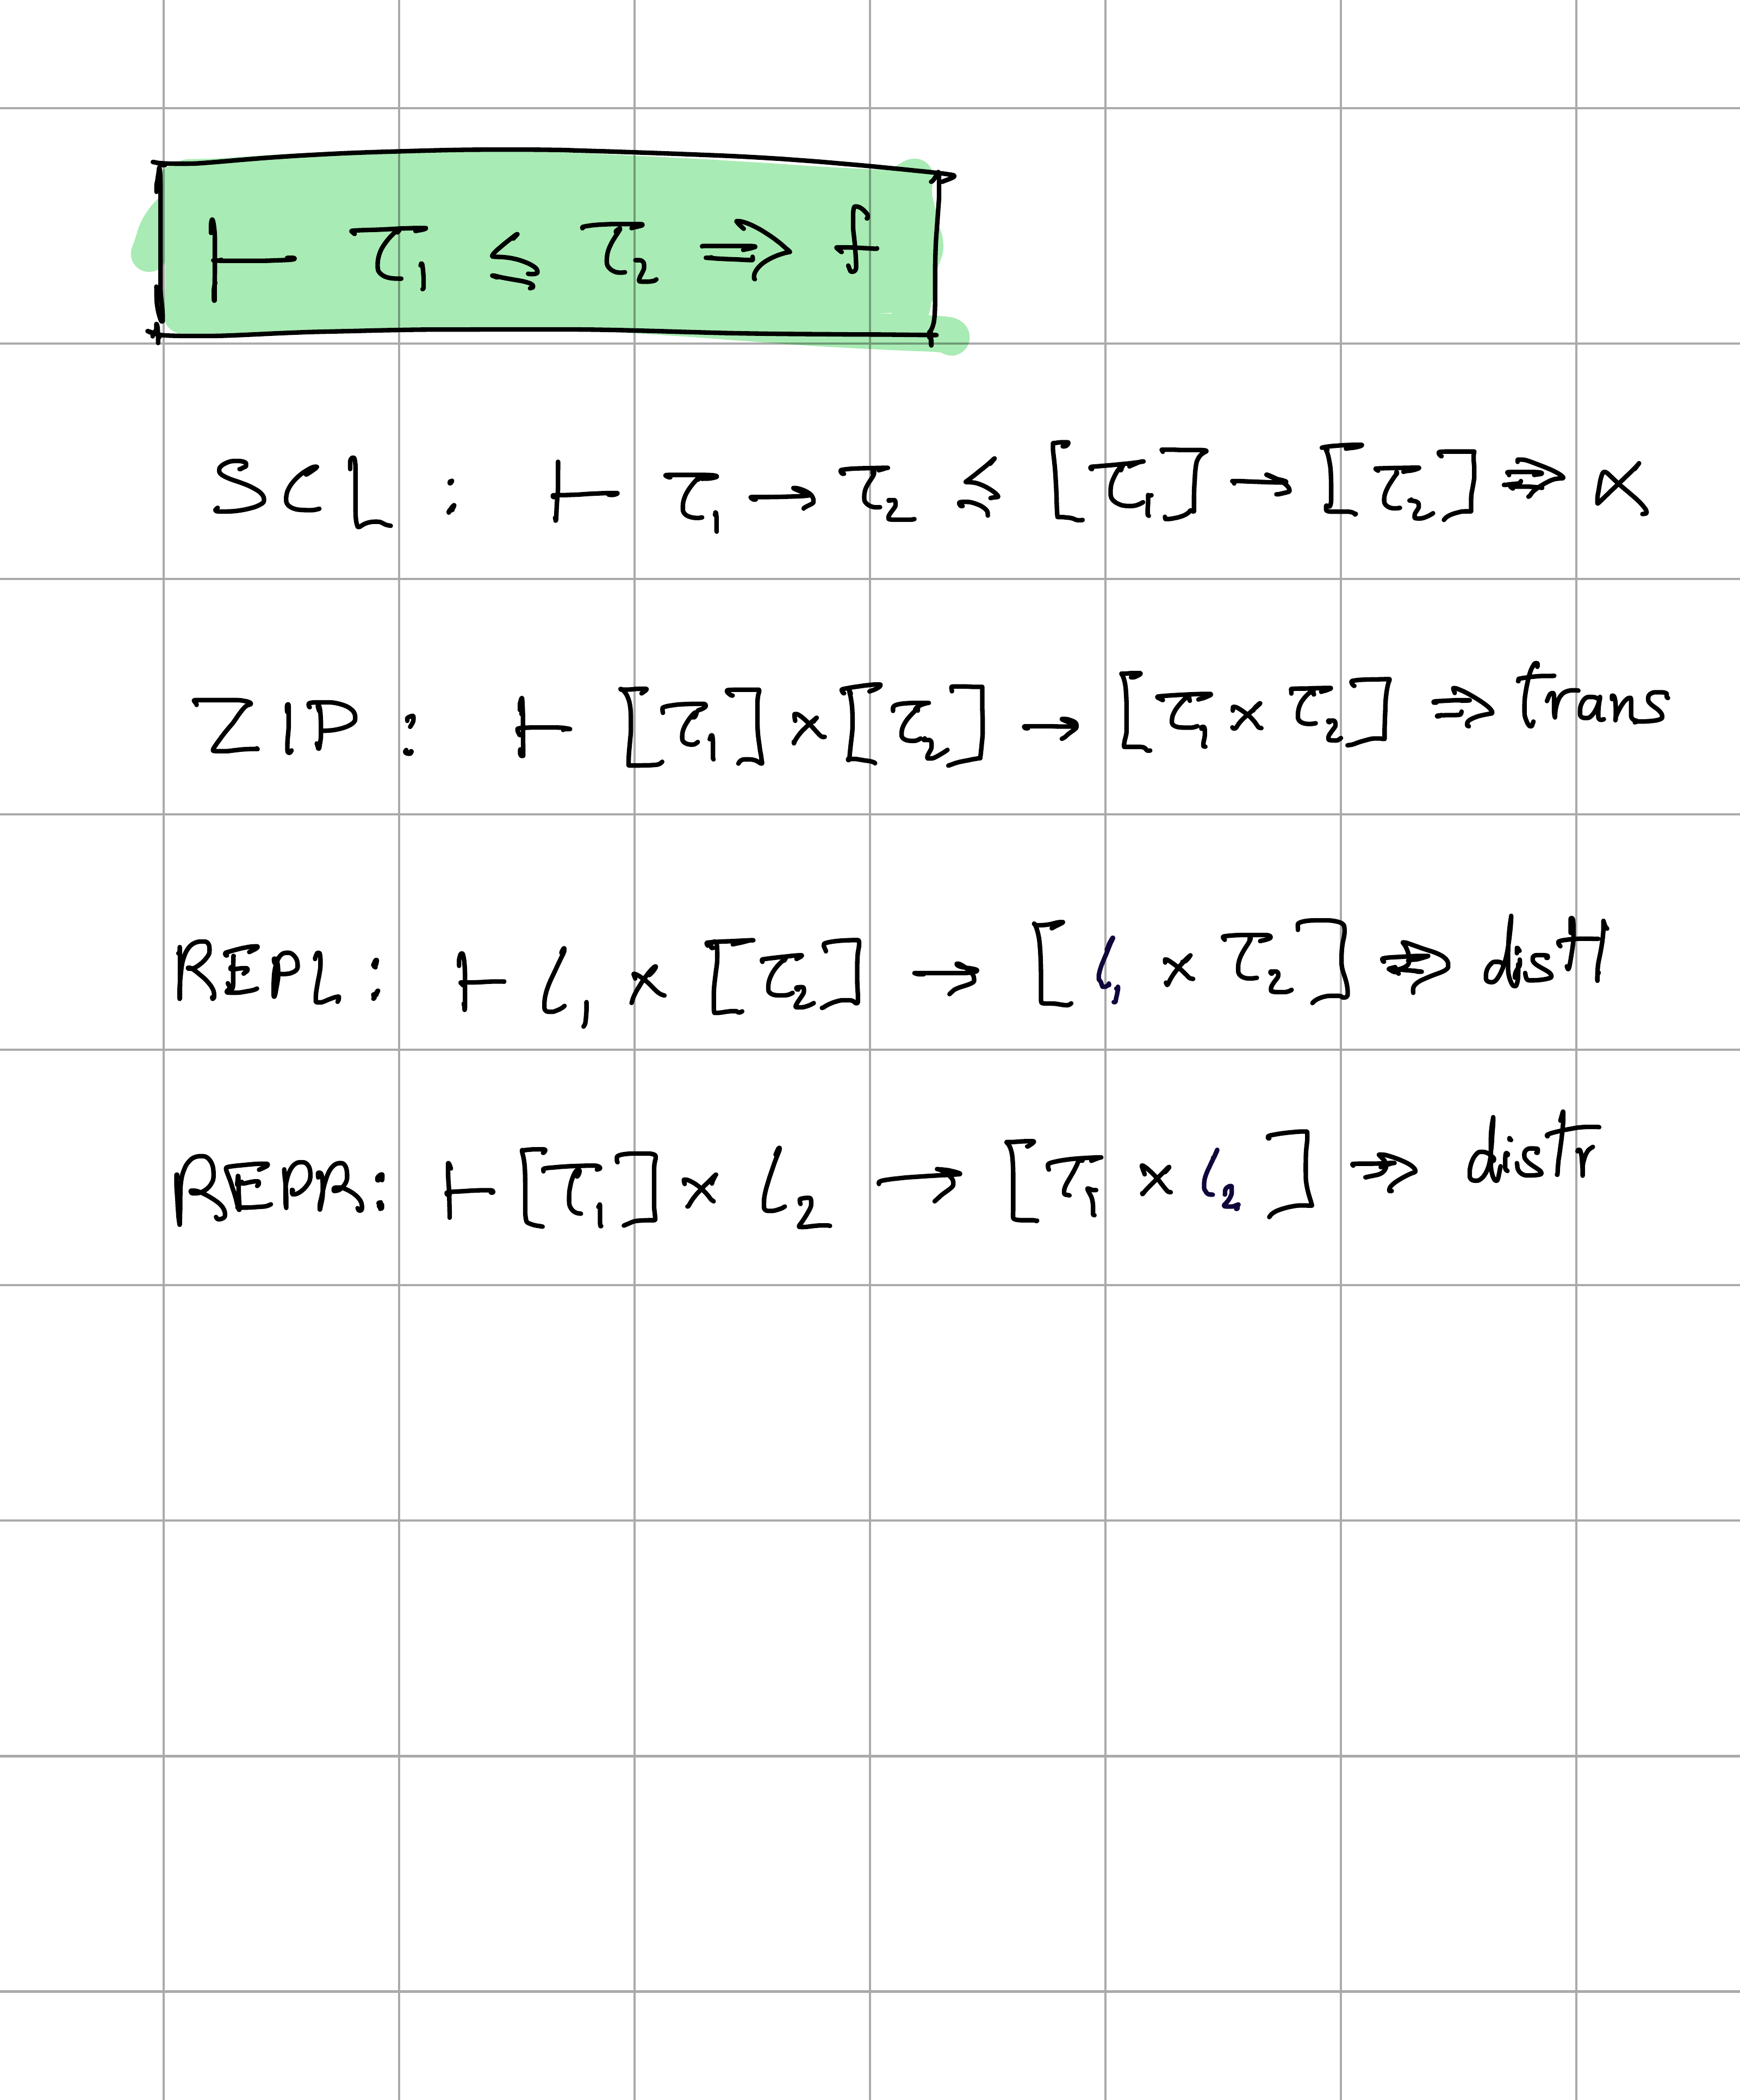 ⊢ τ₁ ≤ τ₂ ⇒ f
SCL : ⊢ τ₁ → τ₂ ≤ [τ₁] → [τ₂] ⇒ α
ZIP : ⊢ [τ₁] × [τ₂] → [τ₁ × τ₂] ⇒ trans
REPL : ⊢ ι₁ × [τ₂] → [ι₁ × τ₂] ⇒ distl
REPR : ⊢ [τ₁] × ι₂ → [τ₁ × ι₂] ⇒ distr